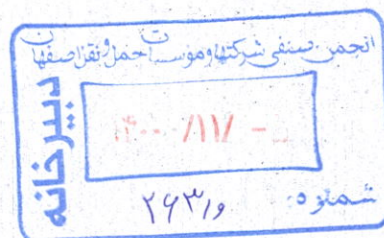 انجمن صنفی شرکتها و موسسات حمل و نقل اصفهان
دبیرخانه
۱۴۰۰ /۱۱/ -
شماره: